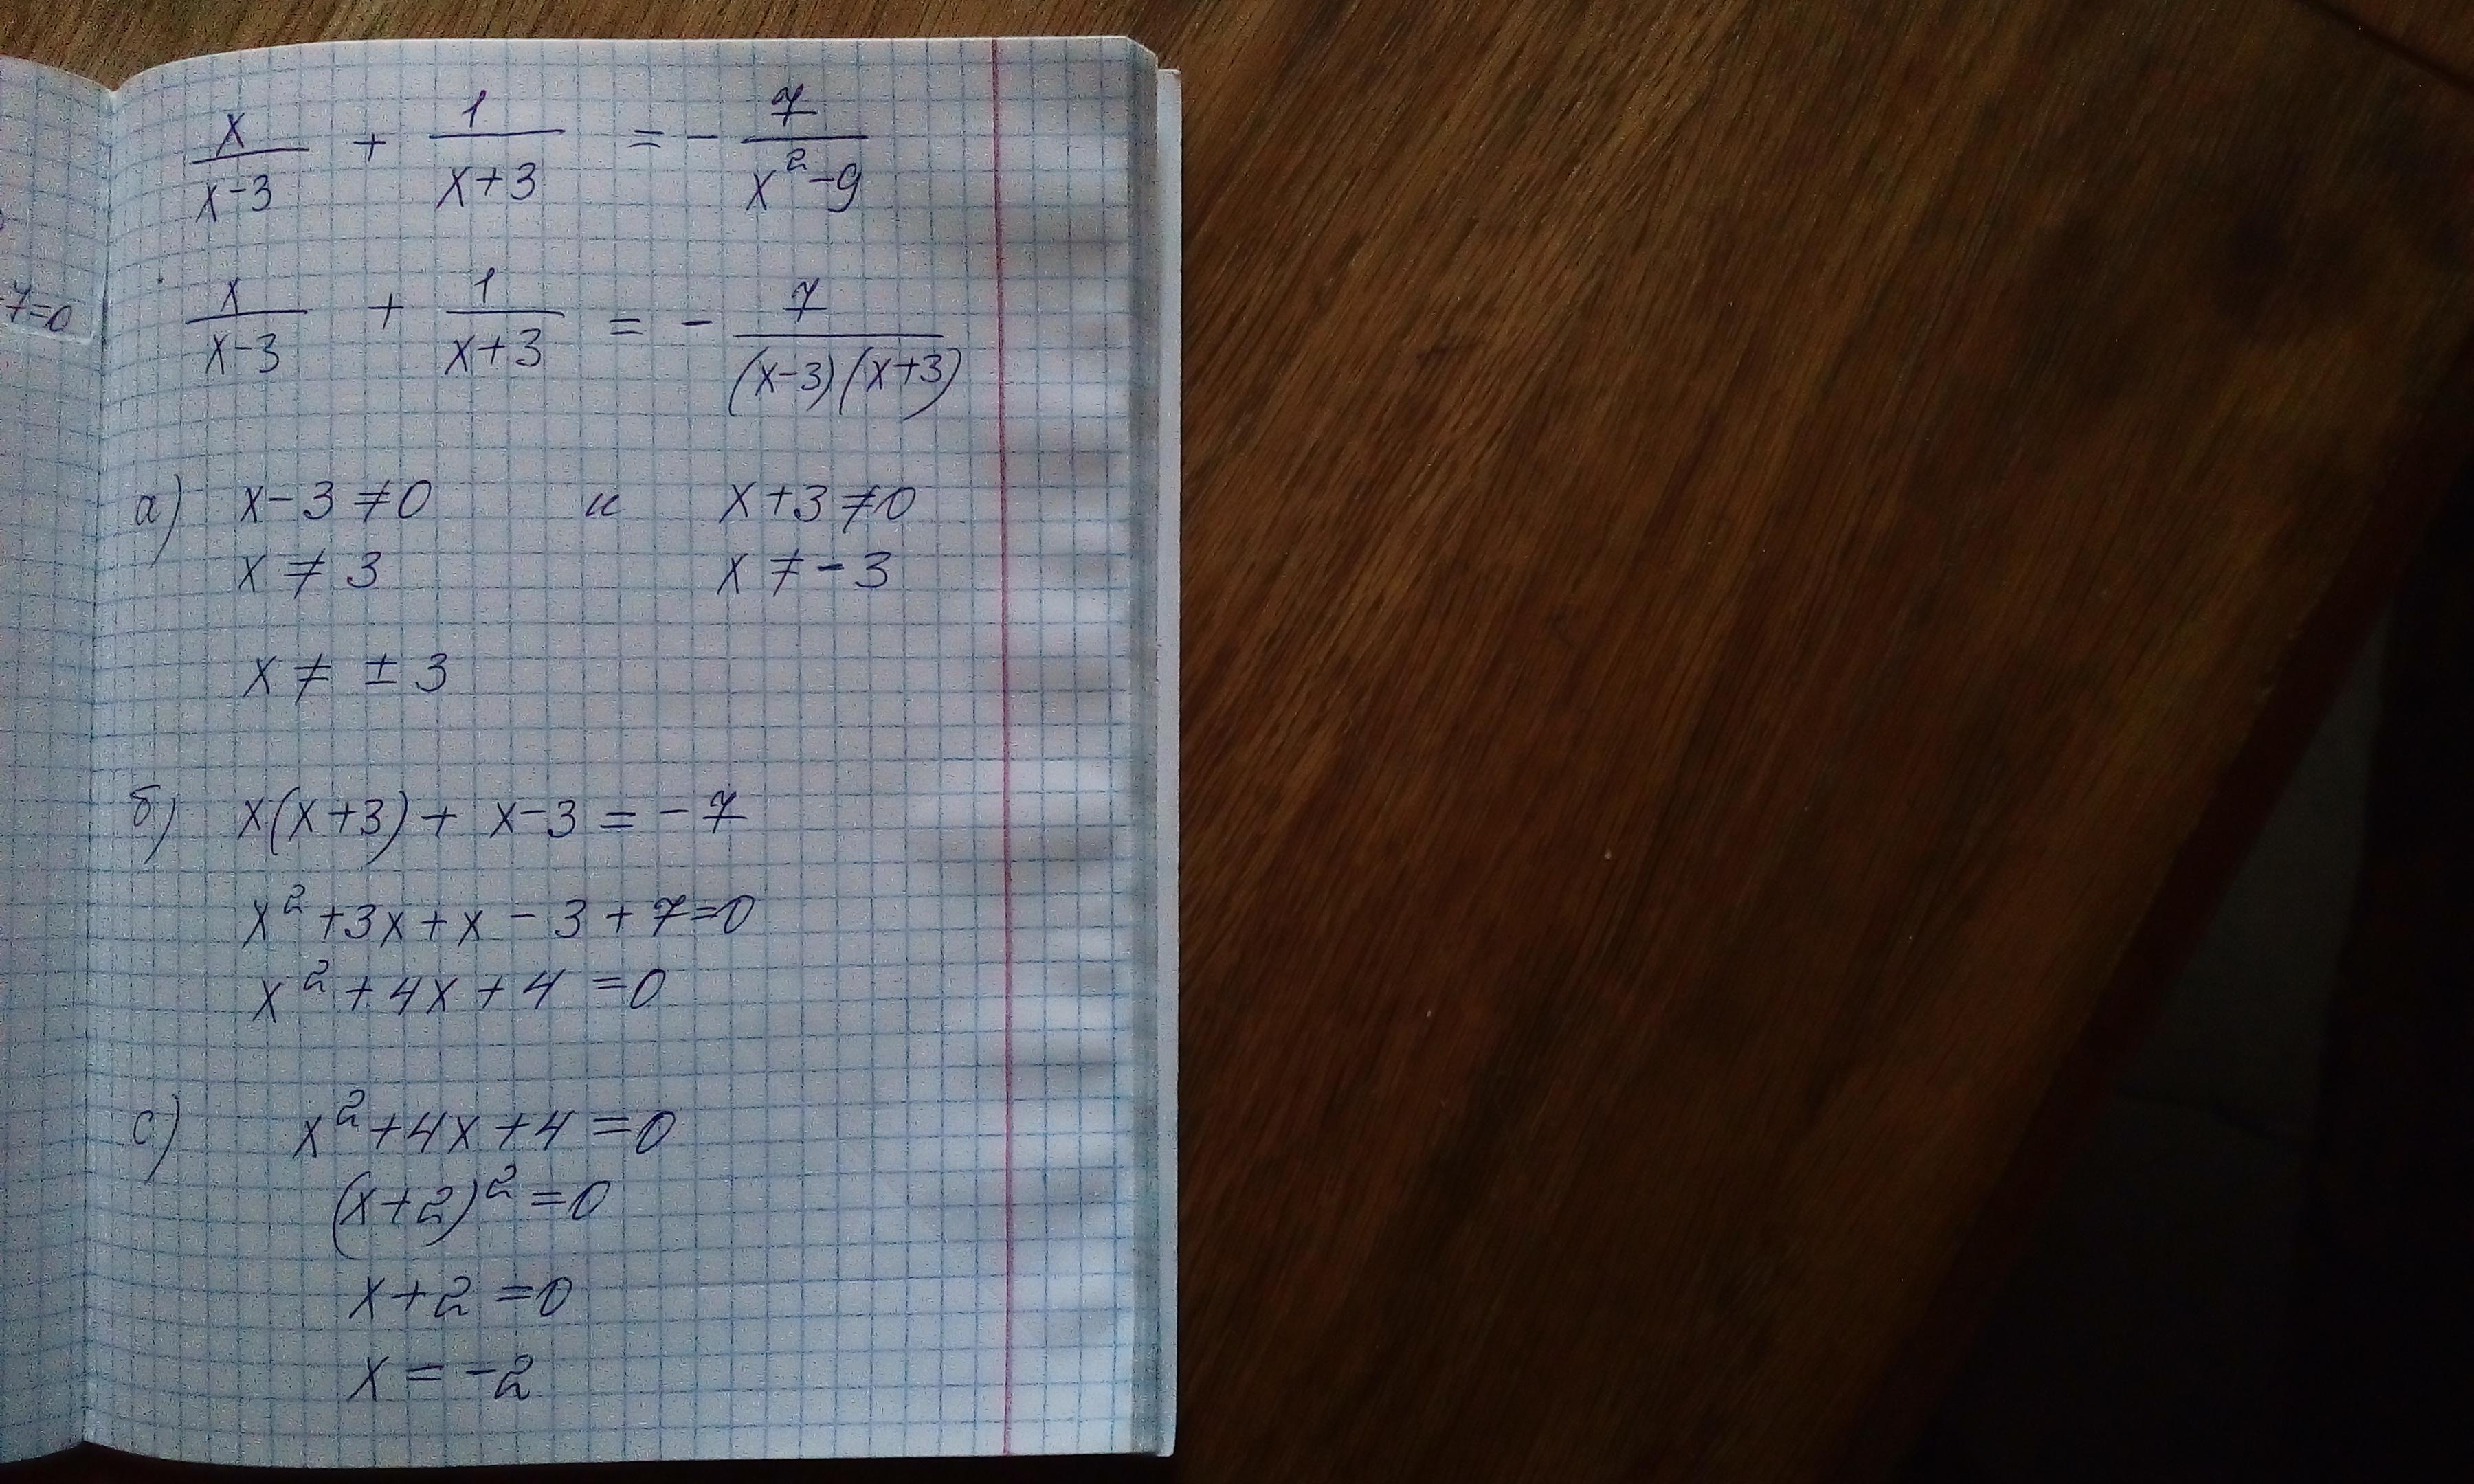 x/(x-3) + 1/(x+3) = - 7/(x²-9)
x/(x-3) + 1/(x+3) = - 7/((x-3)(x+3))
7=0
а) x-3≠0 и x+3≠0
x≠3 x≠-3
x≠ ±3
б) x(x+3)+ x-3 = -7
x²+3x+x-3+7=0
x²+4x+4=0
с) x²+4x+4=0
(x+2)²=0
x+2=0
x=-2